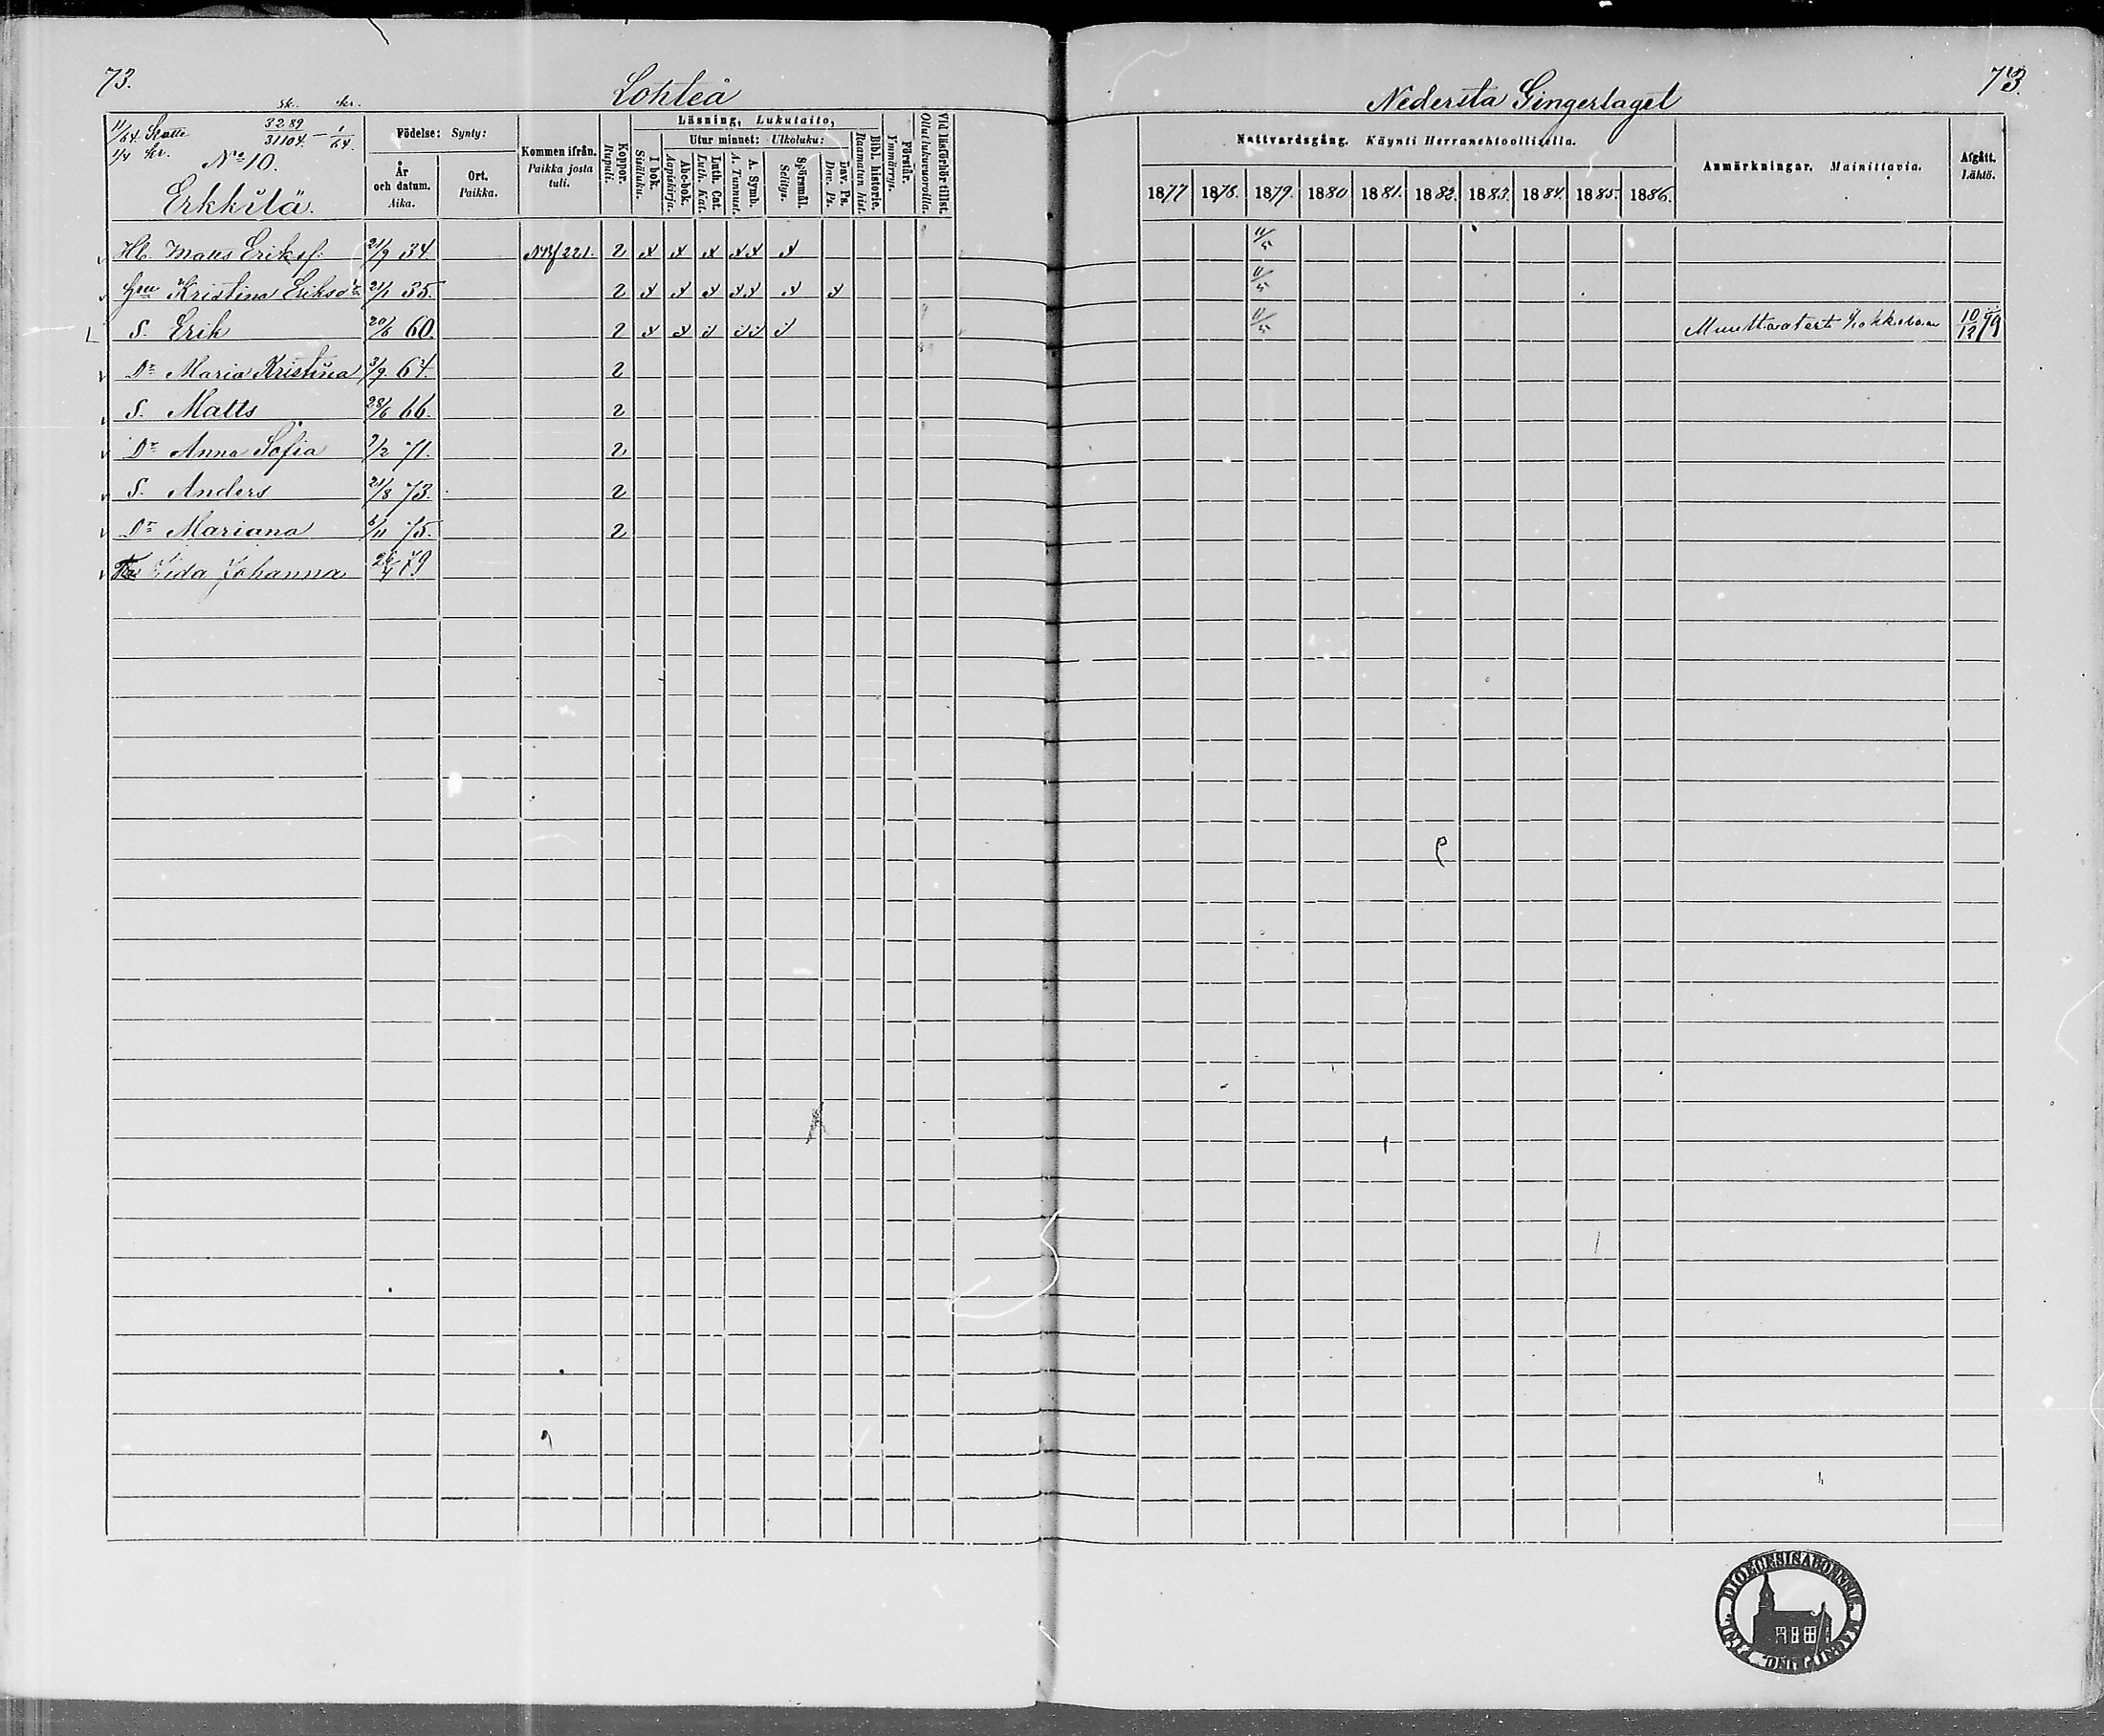 73.
Lohteå
Nedersta Gingerlaget
73.
sk. kr.
11/64 Skatte 3289/31104 - 1/64
1/4 kr.
No 10.
Erkkilä.
Födelse: Synty:
År och datum. Aika.
Ort. Paikka.
Kommen ifrån. Paikka josta tuli.
Koppor. Rupuli.
Läsning, Lukutaito,
I bok. Sisäluku.
Utur minnet: Ulkoluku:
Abc-bok. Aapiskirja.
Luth. Cat. Luth. Kat.
A. Symb. A. Tunnust.
Spörsmål. Selitys.
Dav. Ps. Dav. Ps.
Bibl. historie. Raamatun hist.
Förstår. Ymmärrys.
Vid läsförhör tillst. Ollut lukuvuorolla.
Nattvardsgång. Käynti Herranehtoollisella.
1877 1878. 1879. 1880 1881. 1882. 1883. 1884. 1885. 1886.
Anmärkningar. Mainittavia.
Afgått. Lähtö.
Hb. Matts Eriksf. 21/9 34 221. 2 11/5
Hu Kristina Eriksdr 21/1 35. 2 11/5
S. Erik 20/6 60. 2 11/5 10/12 79
Dr Maria Kristina 3/9 64. 2
S. Matts 28/6 66. 2
Dr Anna Sofia 7/2 71. 2
S. Anders 21/8 73. 2
Dr Mariana 6/11 75. 2
Iida Johanna 26/4 79